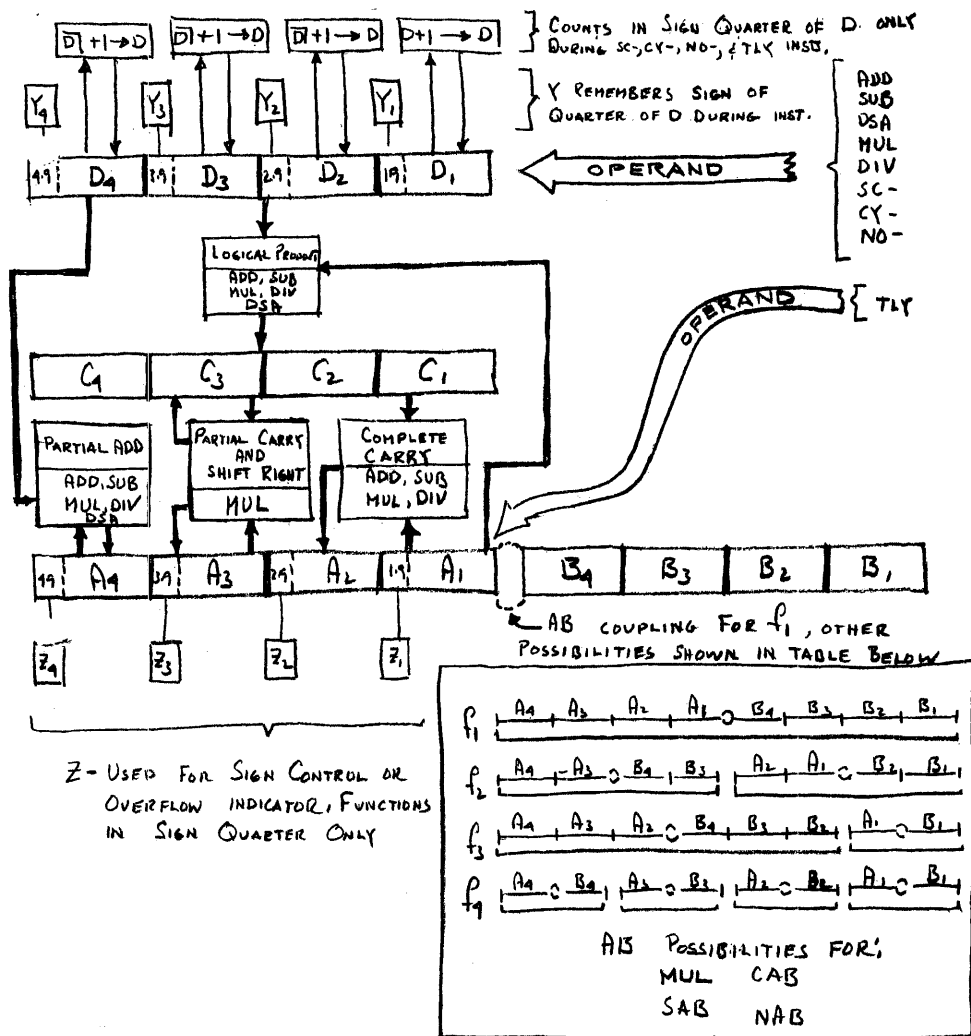 D̅ +1→D D̅ +1→D D̅ +1→D D+1→D
COUNTS IN SIGN QUARTER OF D. ONLY
DURING SC-, CY-, NO-, & TLY INSTS,
Y4 Y3 Y2 Y1
Y REMEMBERS SIGN OF
QUARTER OF D DURING INST.
ADD
SUB
DSA
MUL
DIV
SC-
CY-
NO-
4.9 D4 3.9 D3 2.9 D2 1.9 D1
OPERAND
LOGICAL PRODUCT
ADD, SUB
MUL, DIV
DSA
OPERAND
TLY
C4 C3 C2 C1
PARTIAL ADD
ADD, SUB
MUL, DIV
DSA
PARTIAL CARRY
AND
SHIFT RIGHT
MUL
COMPLETE
CARRY
ADD, SUB
MUL, DIV
4.9 A4 3.9 A3 2.9 A2 1.9 A1
B4 B3 B2 B1
Z4 Z3 Z2 Z1
AB COUPLING FOR f1, OTHER
POSSIBILITIES SHOWN IN TABLE BELOW
Z - USED FOR SIGN CONTROL OR
OVERFLOW INDICATOR, FUNCTIONS
IN SIGN QUARTER ONLY
f1 A4 A3 A2 A1 B4 B3 B2 B1
f2 A4 A3 B4 B3 A2 A1 B2 B1
f3 A4 A3 A2 B4 B3 B2 A1 B1
f4 A4 B4 A3 B3 A2 B2 A1 B1
AB POSSIBILITIES FOR:
MUL CAB
SAB NAB